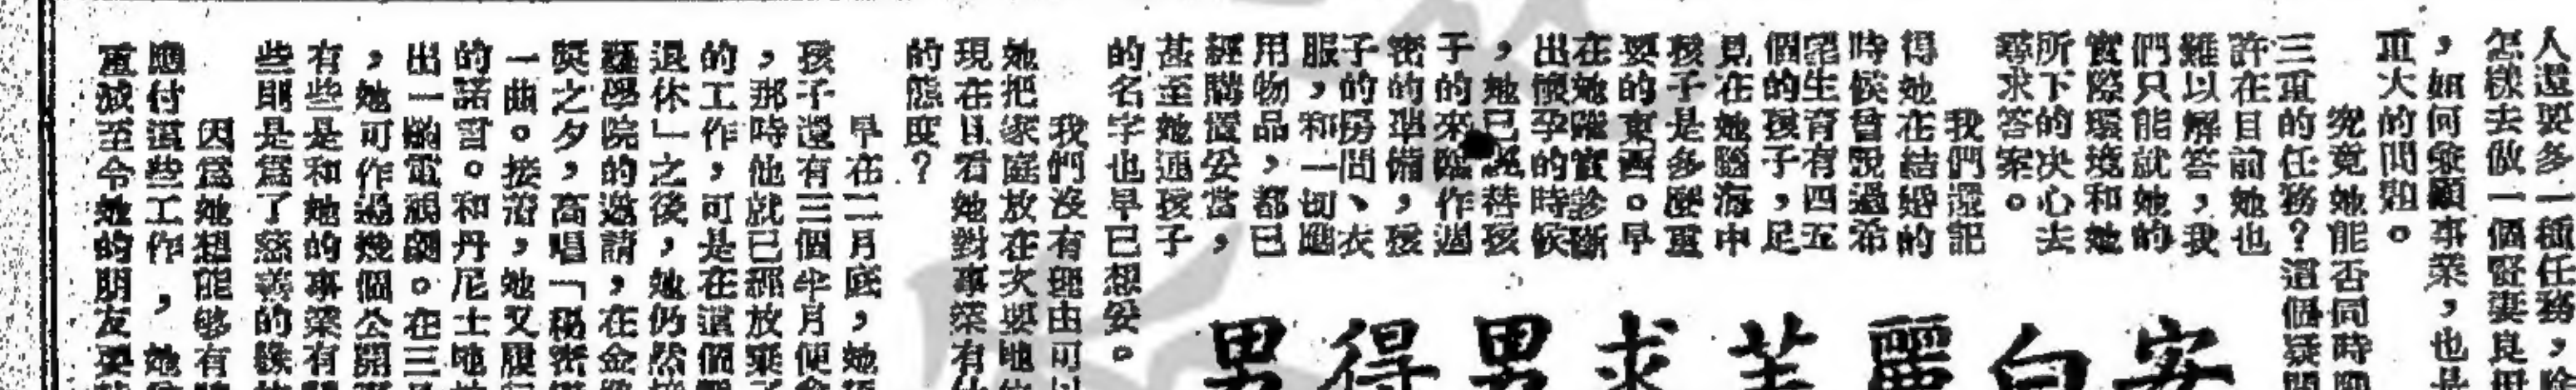 人還要多一種任務，除
怎樣去做一個賢妻良母
，如何兼顧事業，也是
重大的問題。
究竟她能否同時
三重的任務？這個疑問
許在目前她也
難以解答，我
們只能就她的
實際環境和她
所下的決心去
尋求答案。
我們還記
得她在結婚的
時候曾說過希
望生育有四五
個的孩子，足
見在她腦海中
孩子是多麼重
要的東西。早
在她證實診斷
出懷孕的時候
，她已經替孩
子的來臨作過
密的準備，孩
子的房間、衣
服，和一切應
用物品，都已
經購置妥當，
甚至她連孩子
的名字也早已想妥。
我們沒有理由可以
她把家庭放在次要地位
現在且看她對事業有什
的態度？
早在二月底，她
孩子還有三個半月便會
，那時他就已經放棄了
的工作，可是在這個
退休」之後，她仍然接
藝學院的邀請，在金像
獎之夕，高唱「秘密
一曲。接着，她又履行
的諾言。和丹尼士地
出一個電視劇。在三月
，她可作過幾個公開
有些是和她的事業有關
些則是爲了慈善的緣故
因爲她想能够有
應付這些工作，她
重減至令她的朋友要
安白麗苦求男得男